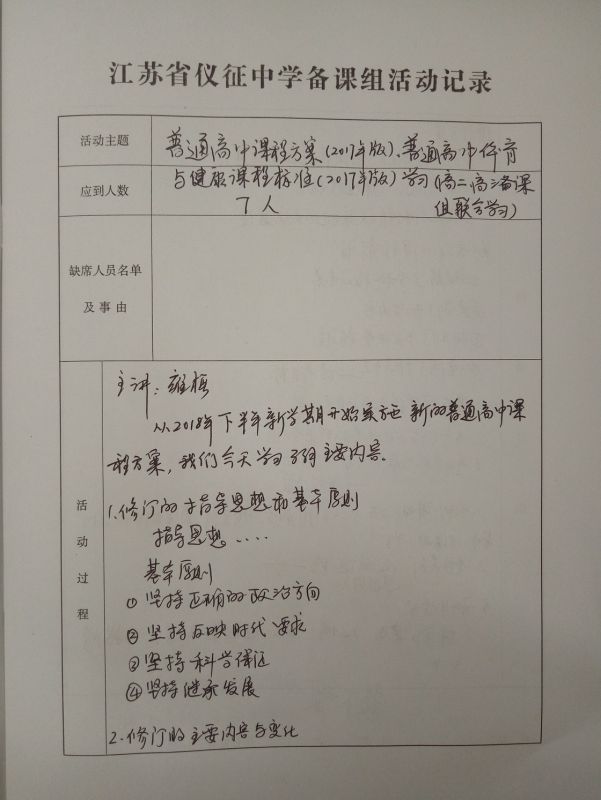 江苏省仪征中学备课组活动记录
活动主题
普通高中课程方案(2017年版)、普通高中体育
应到人数
与健康课程标准(2017年版)学习(高二高三备课
7人
组联合学习)
缺席人员名单
及事由
主讲:
从2018年下半年新学期开始实施新的普通高中课
程方案,我们今天学习主要内容。
活动过程
1.修订的指导思想和基本原则
指导思想....
基本原则
①坚持正确的政治方向
②坚持反映时代要求
③坚持科学论证
④坚持继承发展
2.修订的主要内容与变化